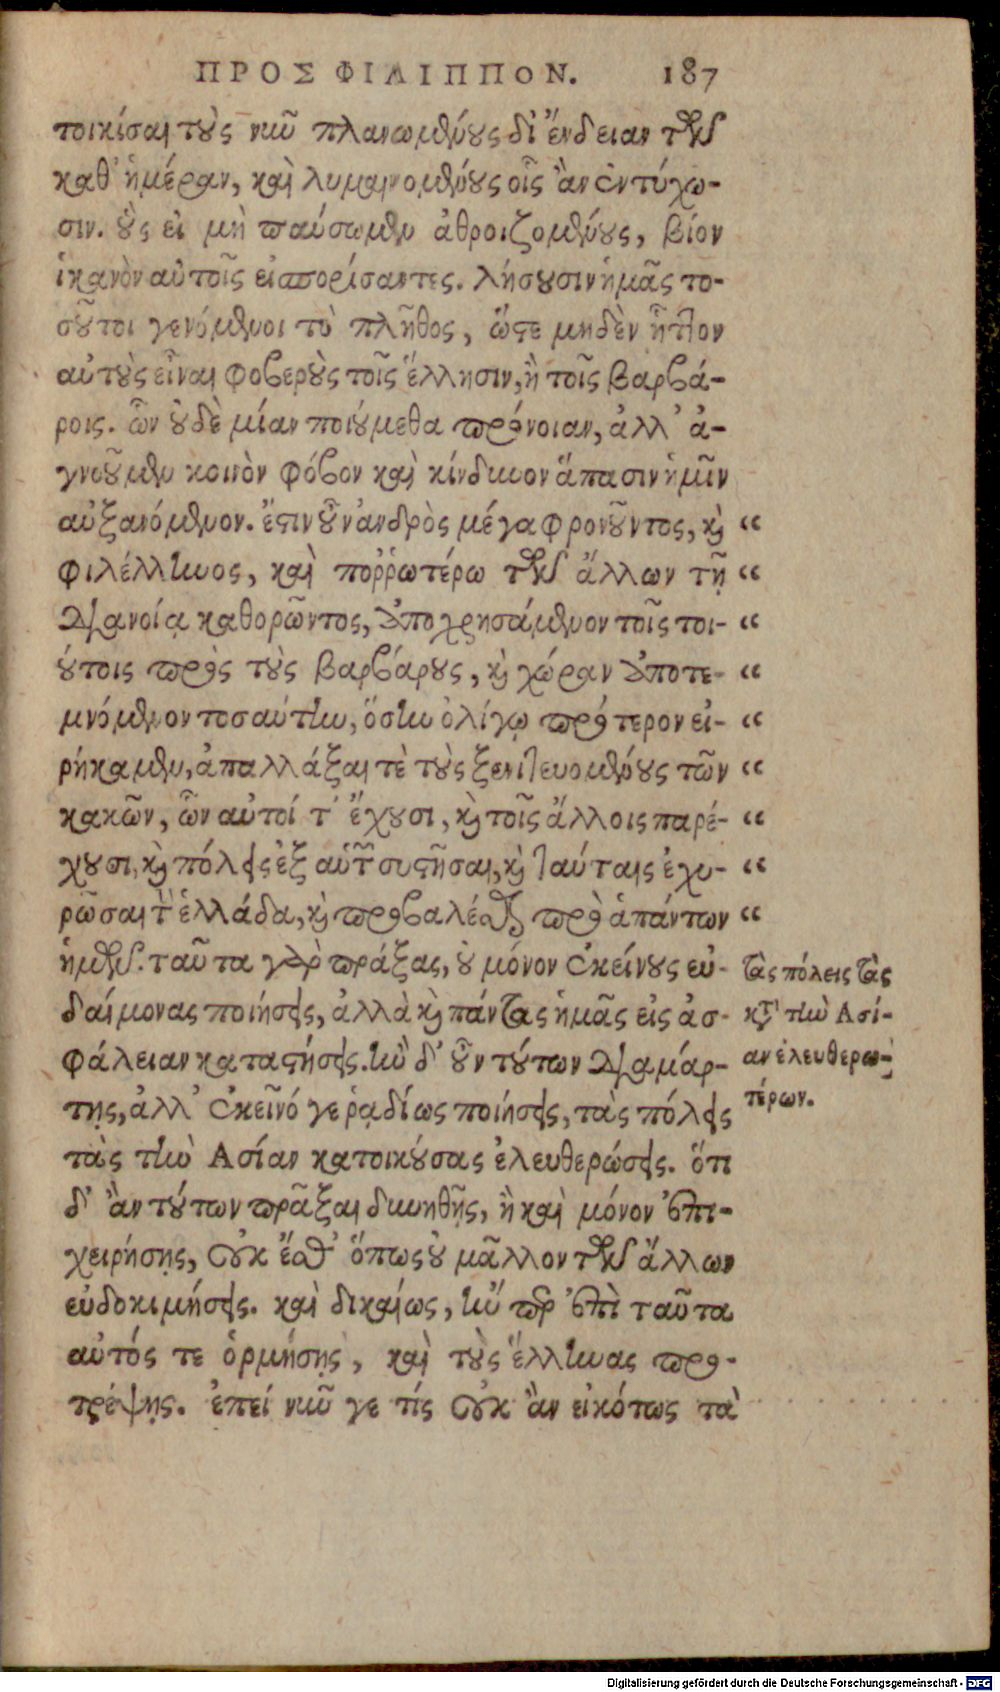 ΠΡΟΣ ΦΙΛΙΠΠΟΝ. 187
τοικίσαι τοὺς νῦν πλανωμένους δἰ ἔνδειαν τῶν
καθ' ἡμέραν, καὶ λυμαινομένους οἷς ἂν ἐντύχω-
σιν. οὓς εἰ μὴ παύσωμεν ἀθροιζομένους, βίον
ἱκανὸν αὐτοῖς εἰσπορίσαντες. λήσουσιν ἡμᾶς το-
σοῦτοι γενόμενοι τὸ πλῆθος, ὥστε μηδὲν ἧττον
αὐτοὺς εἶναι φοβεροὺς τοῖς ἕλλησιν, ἢ τοῖς βαρβά-
ροις. ὧν οὐδὲ μίαν ποιούμεθα πρόνοιαν, ἀλλ' ἀ-
γνοοῦμεν κοινὸν φόβον καὶ κίνδυνον ἅπασιν ἡμῖν
αὐξανόμενον. ἔστιν οὖν ἀνδρὸς μέγα φρονοῦντος, καὶ “
φιλέλληνος, καὶ ποῤῥωτέρω τῶν ἄλλων τῇ “
διανοίᾳ καθορῶντος, ἀποχρησάμενον τοῖς τοι- “
ούτοις πρὸς τοὺς βαρβάρους, καὶ χώραν ἀποτε- “
μνόμενον τοσαύτην, ὅσην ὀλίγῳ πρότερον εἰ- “
ρήκαμεν, ἀπαλλάξαι τὲ τοὺς ξενιτευομένους τῶν “
κακῶν, ὧν αὐτοί τ' ἔχουσι, καὶ τοῖς ἄλλοις παρέ- “
χουσι, καὶ πόλεις ἐξ αὐτῶν συστῆσαι, καὶ ταύταις ἐχυ- “
ρῶσαι τὴν ἑλλάδα, καὶ προβαλέσθαι πρὸ ἁπάντων “
ἡμῶν. ταῦτα γὰρ πράξας, οὐ μόνον ἐκείνους εὐ-
δαίμονας ποιήσεις, ἀλλὰ καὶ πάντας ἡμᾶς εἰς ἀσ-
φάλειαν καταστήσεις. ἢν δ' οὖν τούτων διαμάρ-
τῃς, ἀλλ' ἐκεῖνό γε ῥαδίως ποιήσεις, τὰς πόλεις
τὰς τὴν Ασίαν κατοικούσας ἐλευθερώσεις. ὅτι
δ' ἂν τούτων πρᾶξαι δυνηθῇς, ἢ καὶ μόνον ἐπι-
χειρήσῃς, οὐκ ἔσθ' ὅπως οὐ μᾶλλον τῶν ἄλλων
εὐδοκιμήσεις. καὶ δικαίως, ἤν περ ἐπὶ ταῦτα
αὐτός τε ὁρμήσῃς, καὶ τοὺς ἕλληνας προ-
τρέψῃς. ἐπεί νῦν γε τίς οὐκ ἂν εἰκότως τὰ
τὰς πόλεις τὰς
κατὰ τὴν Ασί-
αν ἐλευθερω-
τέρων.
Digitalisierung gefördert durch die Deutsche Forschungsgemeinschaft - DFG